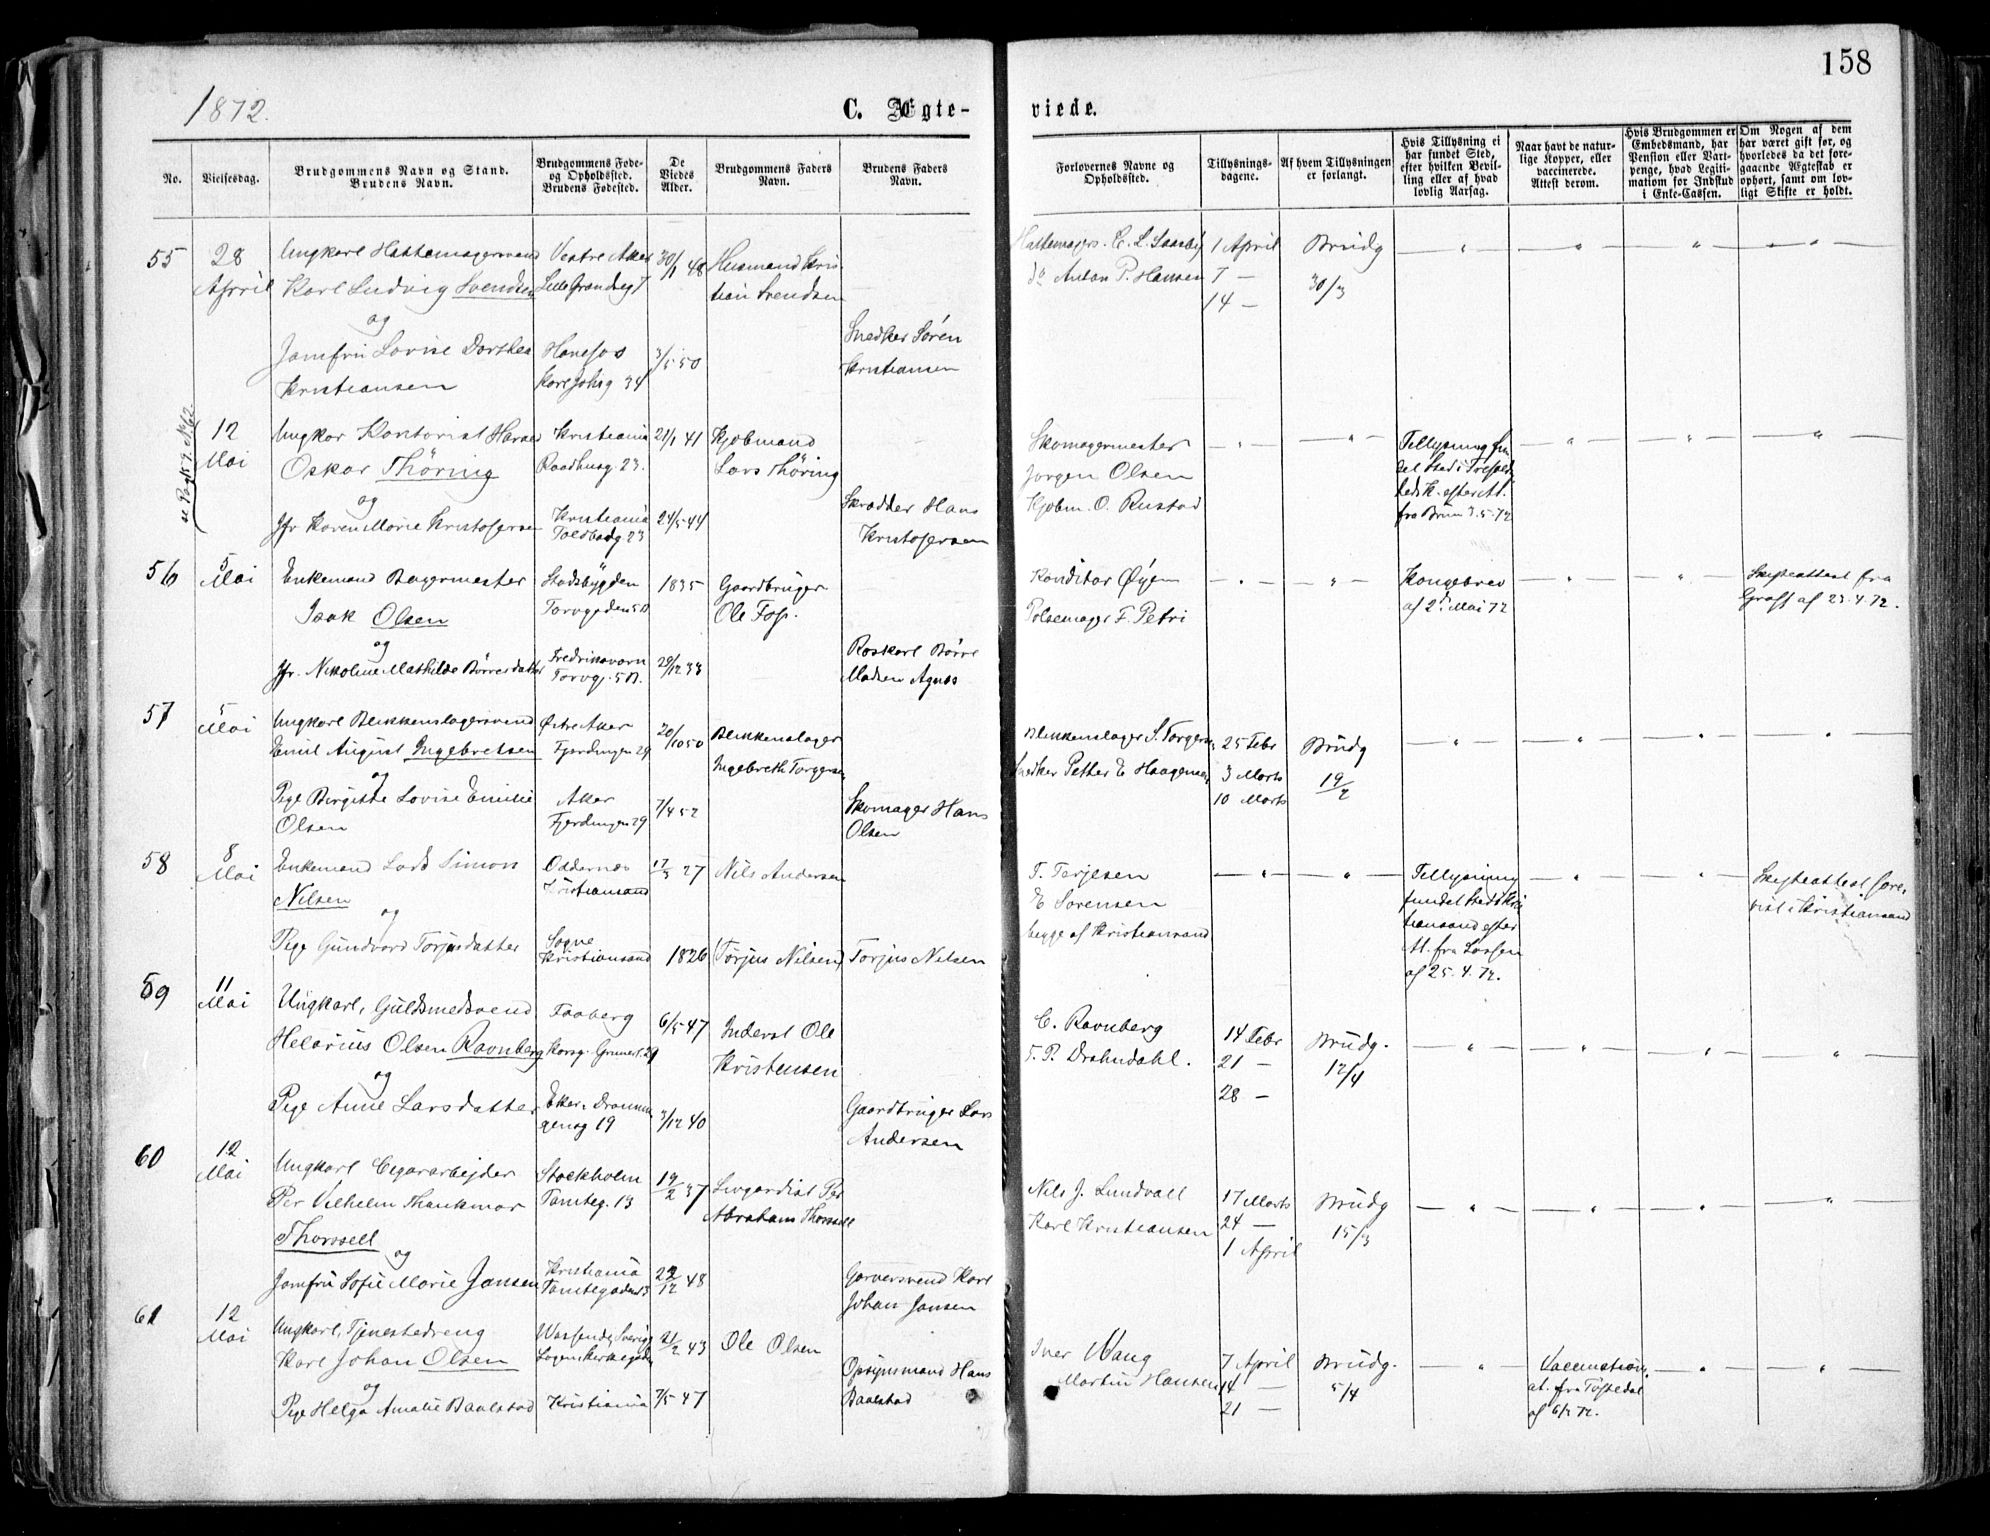 158
1872.
C. Ægte-
viede.
No.
Vielsesdag.
Brudgommens Navn og Stand.
Brudens Navn.
Brudgommens Føde-
og Opholdssted.
Brudens Fødested.
De
Viedes
Alder.
Brudgommens Faders
Navn.
Brudens Faders
Navn.
Forlovernes Navne og
Opholdssted.
Tillysnings-
dagene.
Af hvem Tillysningen
er forlangt.
Hvis Tillysning ei
har fundet Sted,
efter hvilken Bevil-
ling eller af hvad
lovlig Aarsag.
Naar havt de natur-
lige Kopper, eller
vaccinerede.
Attest derom.
Hvis Brudgommen er
Embedsmand, har
Pension eller Vart-
penge, hvad Legiti-
mation for Indskud
i Enke-Cassen.
Om Nogen af dem
har været gift før, og
hvorledes da det fore-
gaaende Ægteskab er
ophørt, samt om lov-
ligt Skifte er holdt.
55
28
April
Ungkarl Hattemagersvend
Karl Ludvig Svendsen
og
Jomfru Lovise Dorthea
Kristiansen
Vestre Aker
Lille Grændseg 7
Hønefos
Karl Johsg 34
30/1 48
3/5 50
Husmand Kris
tian Svendsen
Snedker Søren
Kristiansen
Hattemagers. C. L. Saasby
do Anton P. Hansen
1 April
7 —
14 —
Brudg
30/3
se Pag 159. No 62.
12
Mai
Ungkar Kontorist Harald
Oskar Thöring
og
Jfr Karen Marie Kristofersen
Kristiania
Raadhusg. 23.
Kristiania
Toldbodg 23
21/1 41
24/5 44
Kjøbmand
Lars Thöring
Skrædder Hans
Kristofersen
Skomagermester
Jørgen Olsen
Kjøbm. O. Rustad
Tillysning fun
det Sted i Trefoldig
heds K. efter At.
fra Bruun 3.5.72
56
5
Mai
Enkemand Bagermester
Isak Olsen
og
Jfr. Nikoline Mathilde Børresdatter
Stadsbygden
Torvgaden 5B
Fredriksværn
Torvg. 5B.
1835
29/12 33
Gaardbruger
Ole Fos.
Roskarl Børre
Madsen Agnes
Konditor Øyen
Pølsemager F. Petri
Kongebrev
af 2d Mai 72
Skifteattest fra
Graff af 23.4.72.
57
5
Mai
Ungkarl Blikkenslagersvend
Emil August Ingebretsen
og
Pige Birgitte Lovise Emilie
Olsen
Østre Aker
Fjerdingen 29
Aker
Fjerdingen 29
20/10 50
7/4 52
Blikkenslager
Ingebreth Torgersen
Skomager Hans
Olsen
Blikkenslager S. Torgersen
Snedker Petter E Haagensen
25 Febr
3 Marts
10 Marts
Brudg
19/2
58
8
Mai
Enkemand Lods Simon
Nilsen
og
Pige Gundvord Torjusdatter
Oddernæs
Kristiansand
Søgne
Kristiansand
17/3 27
1826
Nils Andersen
(Torjus Nilsen)
Torjus Nilsen
T. Terjesen
E Sørensen
begge af Kristiansand
Tillysning
fundet Sted i Kris
tiansand efter
At. fra Lassen
af 25.4.72.
Skifteattest fore-
vist i Kristiansand
59
11
Mai
Ungkarl, Guldsmedsvend
Helarius Olsen Ravnberg
og
Pige Anne Larsdatter
Faaberg
Korsg. Grünerl. 29
Eker, Drammen
Vensg 19
6/5 47
3/12 40
Inderst Ole
Kristensen
Gaardbruger Lars
Andersen
C. Ravnberg
T. P. Drahndahl.
14 Febr
21 —
28 —
Brudg.
12/4
60
12
Mai
Ungkarl Cigararbejder
Per Vilhelm Thankmar
Thorssell
og
Jomfru Sofie Marie Jansen
Stockholm
Tomteg. 13
Kristiania
Tomtegaden 13
19/2 37
22/12 48
Livgardist Per
Abraham Thorssell
Garversvend Karl
Johan Jansen
Nils J. Lundvall
Karl Kristiansen
17 Marts
24 —
1 April
Brudg
15/3
61
12
Mai
Ungkarl, Tjenestedreng
Karl Johan Olsen
og
Pige Helga Amalie Baalstad
Kristiania
21/2 43
7/5 47
Ole Olsen
Opsynsmand Hans
Baalstad
Iver Waug
Martin Hansen
7 April
14 —
21 —
Brudg.
5/4
Vaccination
at. fra Tofsedal
af 6/2 72.